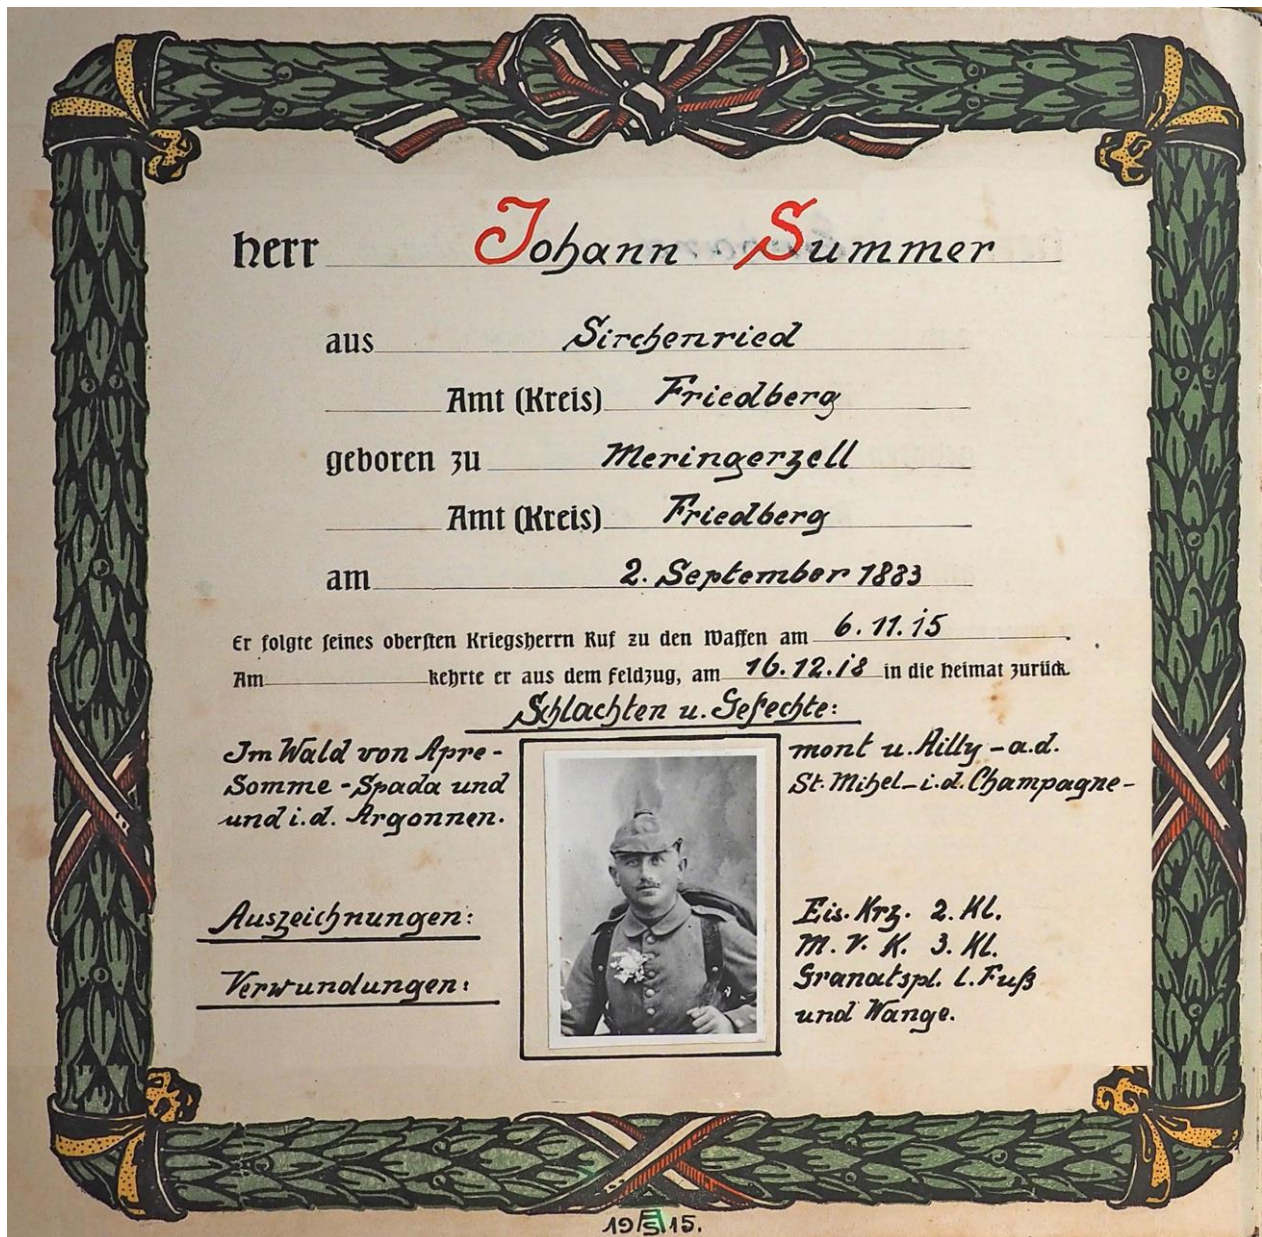 Herr Johann Summer
aus Sirchenried
Amt (Kreis) Friedberg
geboren zu Meringerzell
Amt (Kreis) Friedberg
am 2. September 1883
Er folgte seines obersten Kriegsherrn Ruf zu den Waffen am 6.11.15
Am kehrte er aus dem Feldzug, am 16.12.18 in die Heimat zurück.
Schlachten u. Gefechte:
Im Wald von Apre- mont u. Ailly - a.d.
Somme - Spada und St. Mihel - i.d. Champagne -
und i.d. Argonnen.
Auszeichnungen: Eis. Krz. 2. Kl.
M. V. K. 3. Kl.
Verwundungen: Granatspl. l. Fuß
und Wange.
19 15.